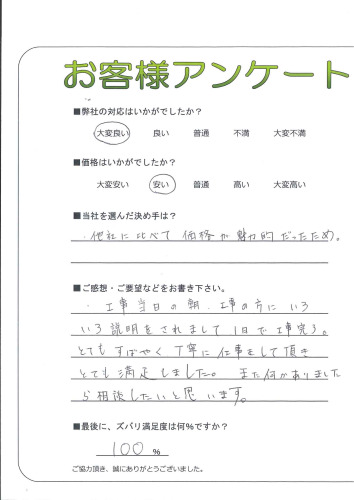 お客様アンケート
■弊社の対応はいかがでしたか？
大変良い 良い 普通 不満 大変不満
■価格はいかがでしたか？
大変安い 安い 普通 高い 大変高い
■当社を選んだ決め手は？
・他社に比べて価格が魅力的だったため。
■ご感想・ご要望などをお書き下さい。
・工事当日の朝、工事の方にいろ
いろ説明をされまして1日で工事完了。
とてもすばやく丁寧に仕事をして頂き
とても満足しました。また何かありました
ら相談したいと思います。
■最後に、ズバリ満足度は何％ですか？
100 ％
ご協力頂き、誠にありがとうございました。